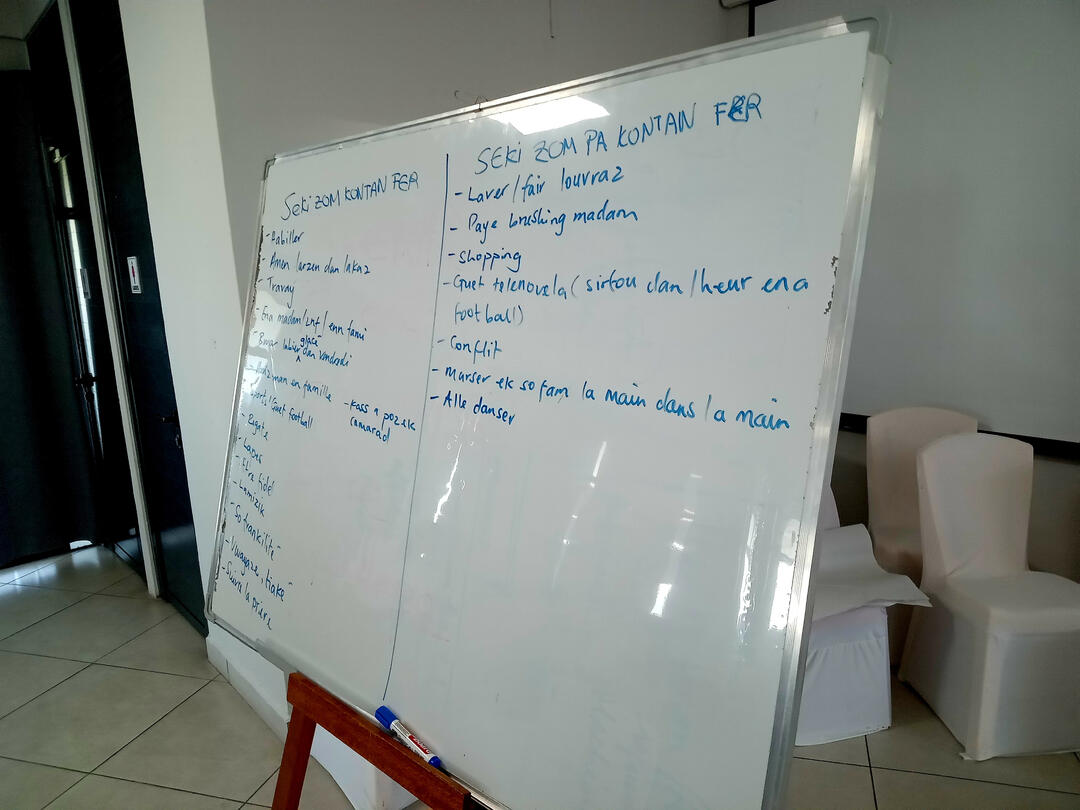 SEKI ZOM KONTAN FER
- Habiller
- Amen larzen dan lakaz
- Travay
- Ena madam/znf/enn fami
glacé
- Bwar labier dan vandredi
man en famille
- kass n poz ek
camarad
Sports/Guet football
- Regate
- Laver
- Etre fidel
- Lamizik
- So trankilité
- Vwayaze,
- Suivre la priere
SEKI ZOM PA KONTAN FER
- Laver/fair louvraz
- Paye brushing madam
- Shopping
- Guet telenovela (sirtou dan l'heur ena
football)
- Conflit
- Marser ek so fam la main dans la main
- Alle danser